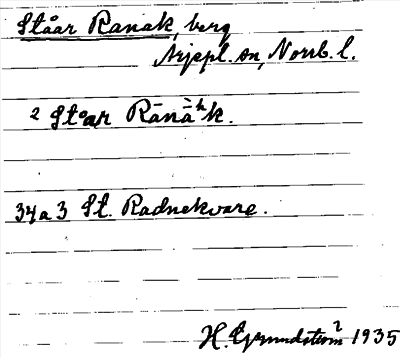 Ståar Ranak, berg
Arjepl. sn, Norrb. l.
2 Stɑar Rānàʰk.
34a3 St. Radnekvare.
H. Grundström 1935